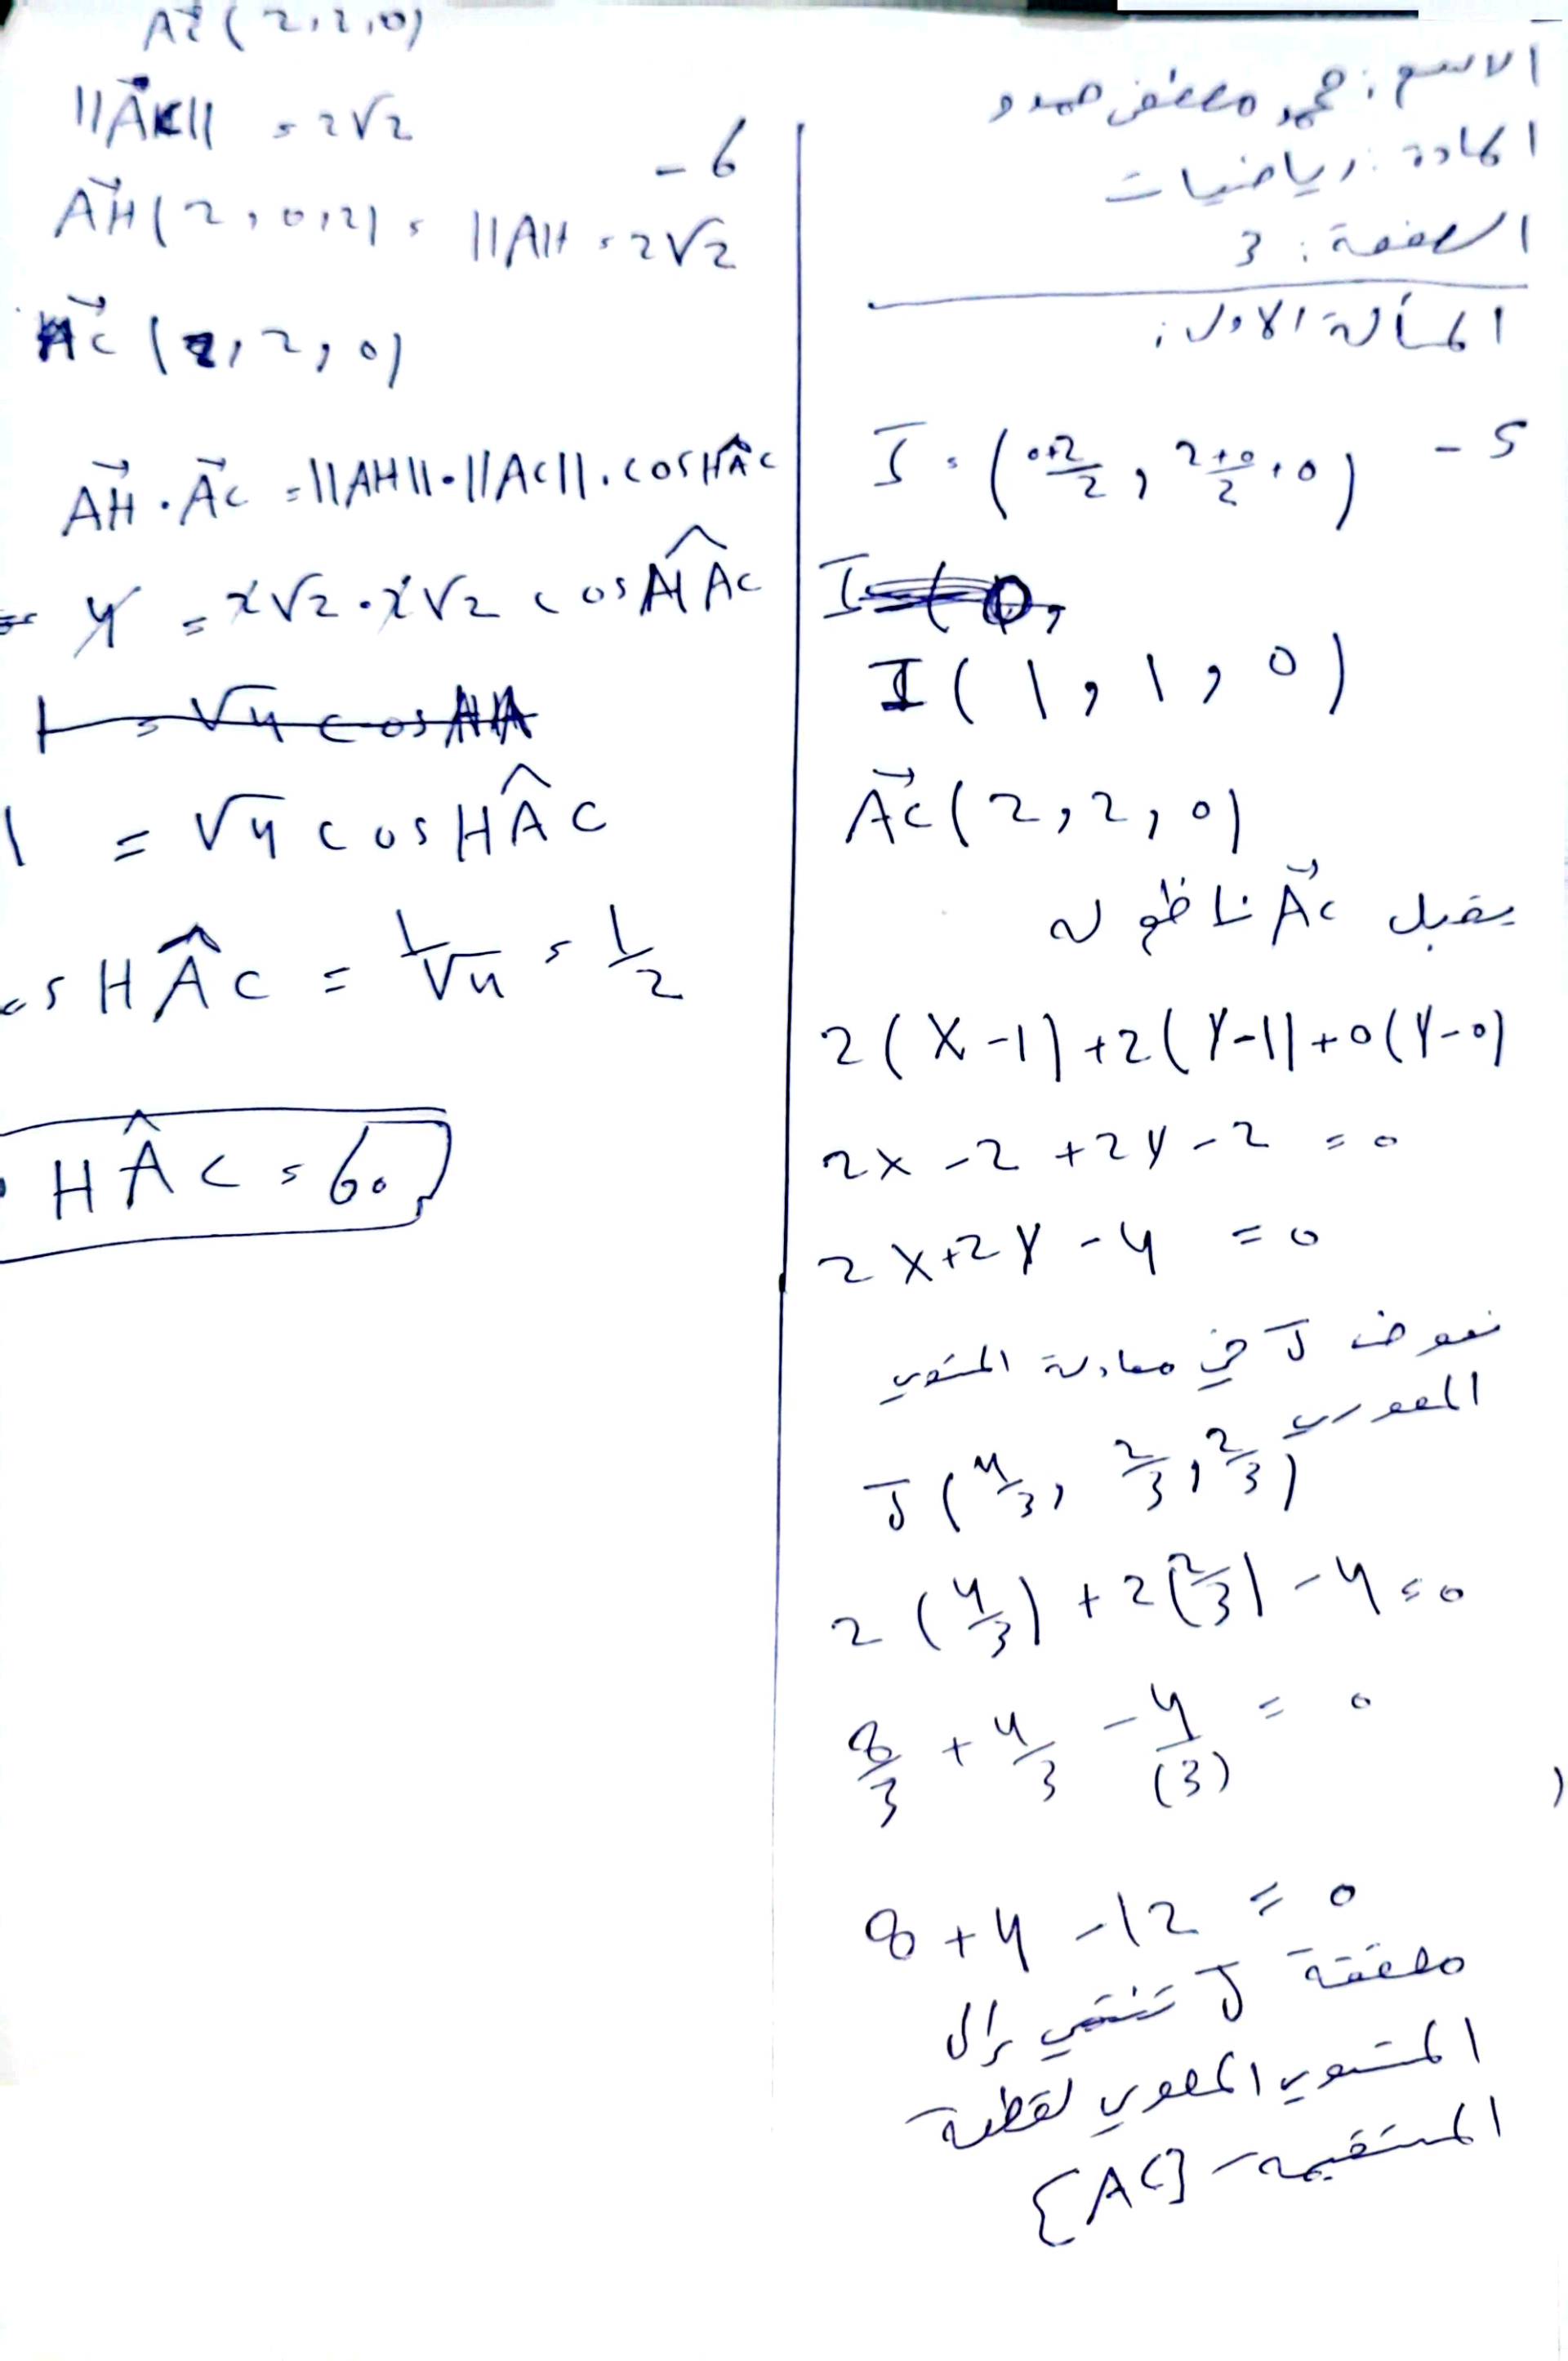 الاسم: محمد مصطفى حمدو
المادة: رياضيات
الصفحة: 3
المسألة الأولى:
5 -
I = (0+2/2, 2+0/2, 0)
I (1, 1, 0)
AC→ (2, 2, 0)
يقبل AC→ ناظم له
2(X-1)+2(Y-1)+0(Y-0)
2x-2+2y-2 = 0
2x+2y-4 = 0
نعوض J في معادلة المستوي
المحوري
J (4/3, 2/3, 2/3)
2(4/3)+2(2/3)-4=0
8/3 + 4/3 - 4/(3) = 0
8+4-12 = 0
محققة J تنتمي إلى
المستوي المحوري لقطعة
المستقيمة [AC]
AC→ (2, 2, 0)
||AC→|| = 2√2
6 -
AH→ (2, 0, 2) = ||AH = 2√2
AC→ (2, 2, 0)
AH→ . AC→ = ||AH||.||AC||.cosHÂC
= 4 = 2√2.2√2 cosHÂC
1 = √4 cosHÂC
cosHÂC = 1/√4 = 1/2
HÂC = 60